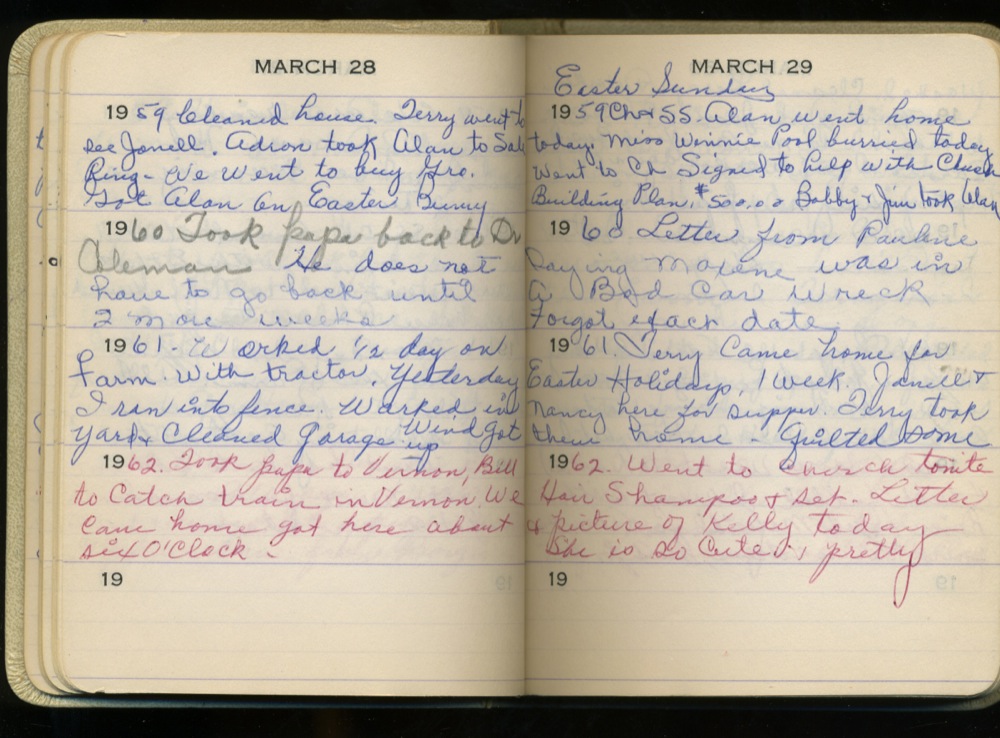 MARCH 28
1959 Cleaned house. Terry went to
see Janell. Adron took Alan to Sale
Ring - We went to buy Gro.
Got Alan an Easter Bunny
1960 Took papa back to Dr
Coleman He does not
have to go back until
2 more weeks
1961. Worked 1/2 day on
Farm. With tractor. Yesterday
I ran into fence. Worked in
yard & Cleaned Garage Wind got
up
1962. Took papa to Vernon, Bill
to Catch train in Vernon. We
came home got here about
six O'Clock -
19
MARCH 29
Easter Sunday
1959 Ch & SS. Alan went home
today. Miss Winnie Pool burried today
Went to Ch Signed to help with Church
Building Plan. $500.00 Bobby & Jim took Alan
1960 Letter from Pauline
Saying Maxene was in
a Bad Car Wreck
Forgot exact date
1961. Terry Came home for
Easter Holidays, 1 week. Janell &
Nancy here for supper. Terry took
them home - Quilted some
1962. Went to Church tonite
Hair Shampoo & set. Letter
& picture of Kelly today
She is so Cute & pretty
19